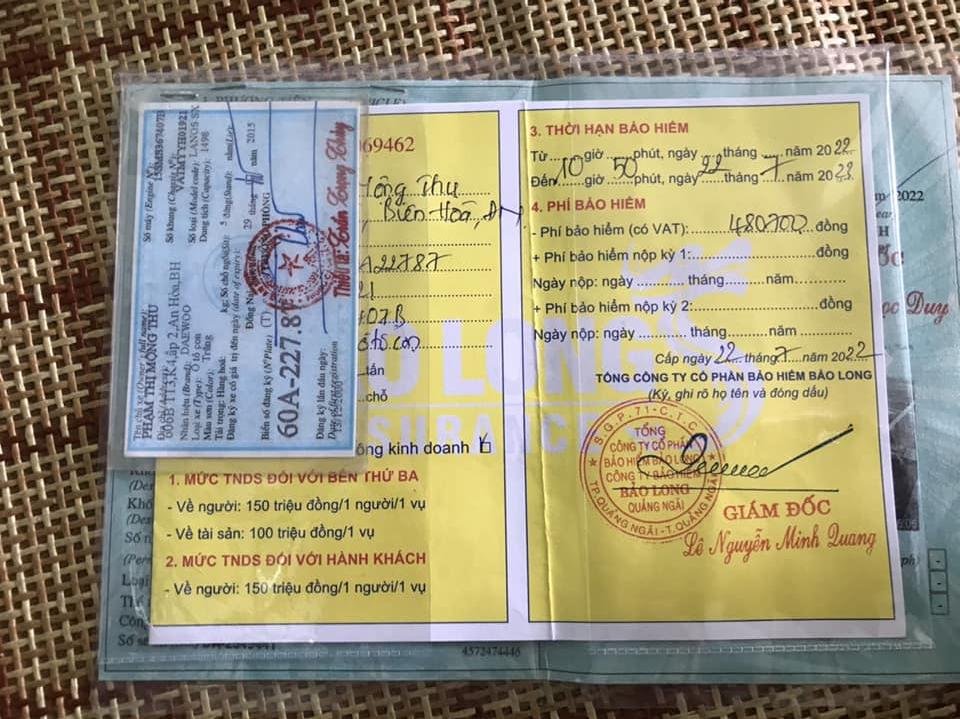 Tên chủ xe (Owner's full name):
PHẠM THỊ MỘNG THU
Địa chỉ (Address):
606B TT3,K4,ấp 2,An Hòa,BH
Nhãn hiệu (Brand): DAEWOO
Số loại (Model code): LANOS SX
Loại xe (Type): Ô tô con
Màu sơn (Color): Trắng
Dung tích (Capacity): 1498
Số máy (Engine N°):
Số khung (Chassis N°):
Tải trọng: Hàng hoá: kg; Số chỗ ngồi(Sit): 5 đứng(Stand): nằm(Lie):
Đăng ký xe có giá trị đến ngày (date of expiry):
29 tháng năm 2015
Biển số đăng ký (N° Plate) (T)
60A-227.87
Đăng ký lần đầu ngày:
Date of first registration
69462
Mộng Thu
Biên Hoà, ĐN
A22787
07B
ôtô con
tấn
chỗ
ông kinh doanh
1. MỨC TNDS ĐỐI VỚI BÊN THỨ BA
- Về người: 150 triệu đồng/1 người/1 vụ
- Về tài sản: 100 triệu đồng/1 vụ
2. MỨC TNDS ĐỐI VỚI HÀNH KHÁCH
- Về người: 150 triệu đồng/1 người/1 vụ
3. THỜI HẠN BẢO HIỂM
Từ 10 giờ 50 phút, ngày 22 tháng 7 năm 2022
Đến giờ phút, ngày 22 tháng 7 năm 2023
4. PHÍ BẢO HIỂM
- Phí bảo hiểm (có VAT): 480700 đồng
+ Phí bảo hiểm nộp kỳ 1: đồng
Ngày nộp: ngày tháng năm
+ Phí bảo hiểm nộp kỳ 2: đồng
Ngày nộp: ngày tháng năm
Cấp ngày 22 tháng 7 năm 2022
TỔNG CÔNG TY CỔ PHẦN BẢO HIỂM BẢO LONG
(Ký, ghi rõ họ tên và đóng dấu)
S.G.P.71-C.T.C
TỔNG
CÔNG TY CỔ PHẦN
BẢO HIỂM BẢO LONG
CÔNG TY BẢO HIỂM
BẢO LONG
QUẢNG NGÃI
TP.QUẢNG NGÃI-T.QUẢNG NGÃI
GIÁM ĐỐC
Lê Nguyễn Minh Quang
2022
Duy
4572474446